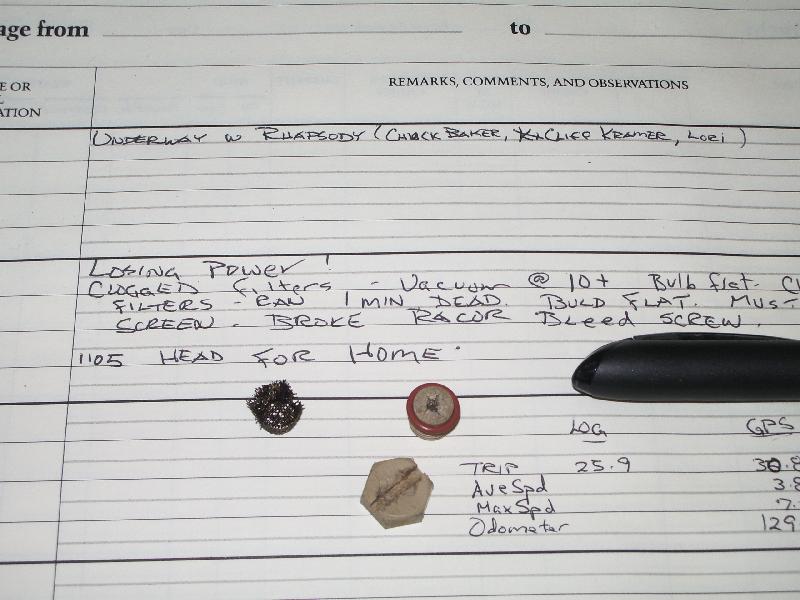 age from to
E OR
ATION
REMARKS, COMMENTS, AND OBSERVATIONS
UNDERWAY W RHAPSODY (CHUCK BAKER, CLIFF KRAMER, LORI)
LOSING POWER!
CLOGGED FILTERS - VACUUM @ 10+ Bulb flat.
FILTERS - RAN 1 MIN DEAD. BULB FLAT. MUST
SCREEN - BROKE RACOR BLEED SCREW.
1105 HEAD FOR HOME.
LOG GPS
TRIP 25.9 30.8
AveSpd 3.8
MaxSpd 7.
Odometer 129